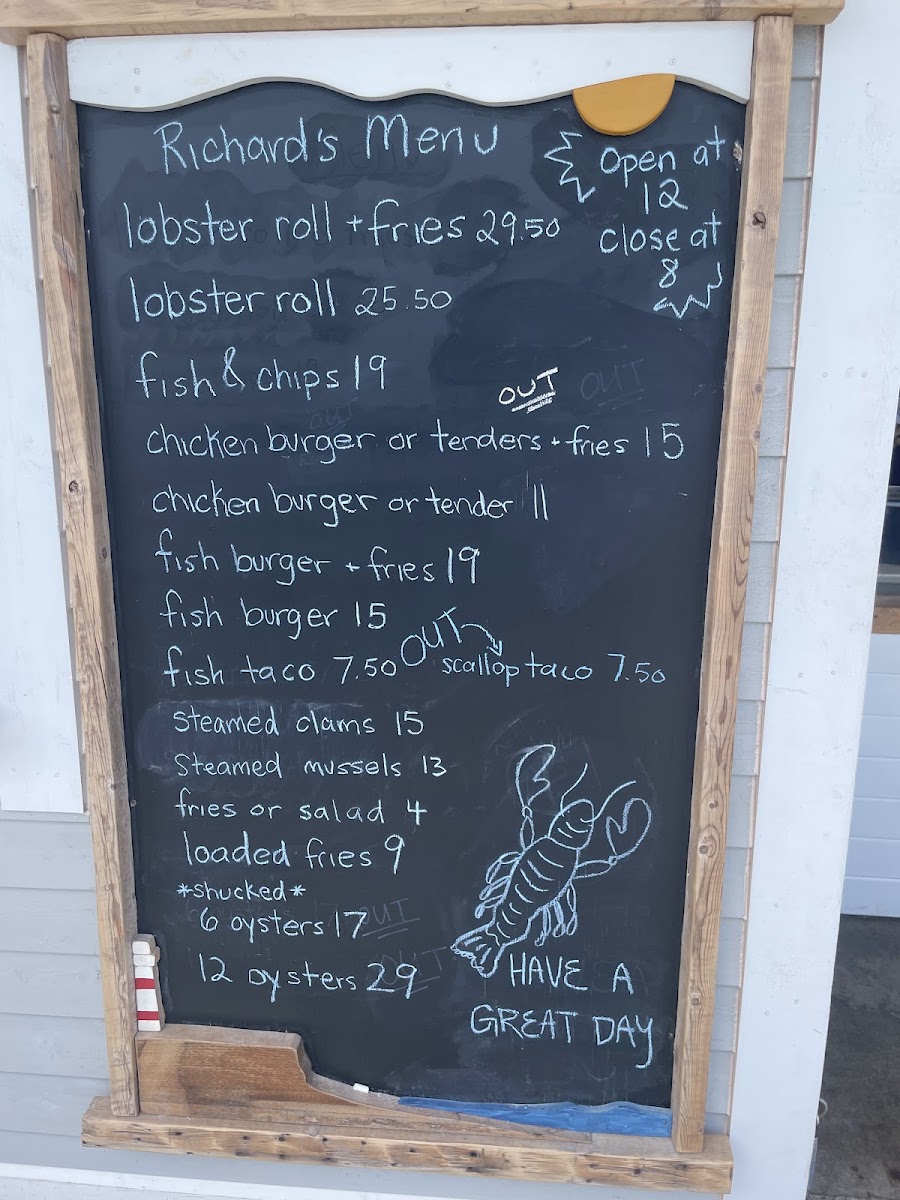 Richard's Menu
Open at
12
close at
8
lobster roll + fries 29.50
lobster roll 25.50
fish & chips 19
OUT
OUT
OUT
chicken burger or tenders + fries 15
chicken burger or tender 11
fish burger + fries 19
fish burger 15
OUT
fish taco 7.50
scallop taco 7.50
steamed clams 15
Steamed mussels 13
fries or salad 4
loaded fries 9
*shucked*
6 oysters 17
OUT
12 oysters 29
OUT
HAVE A
GREAT DAY